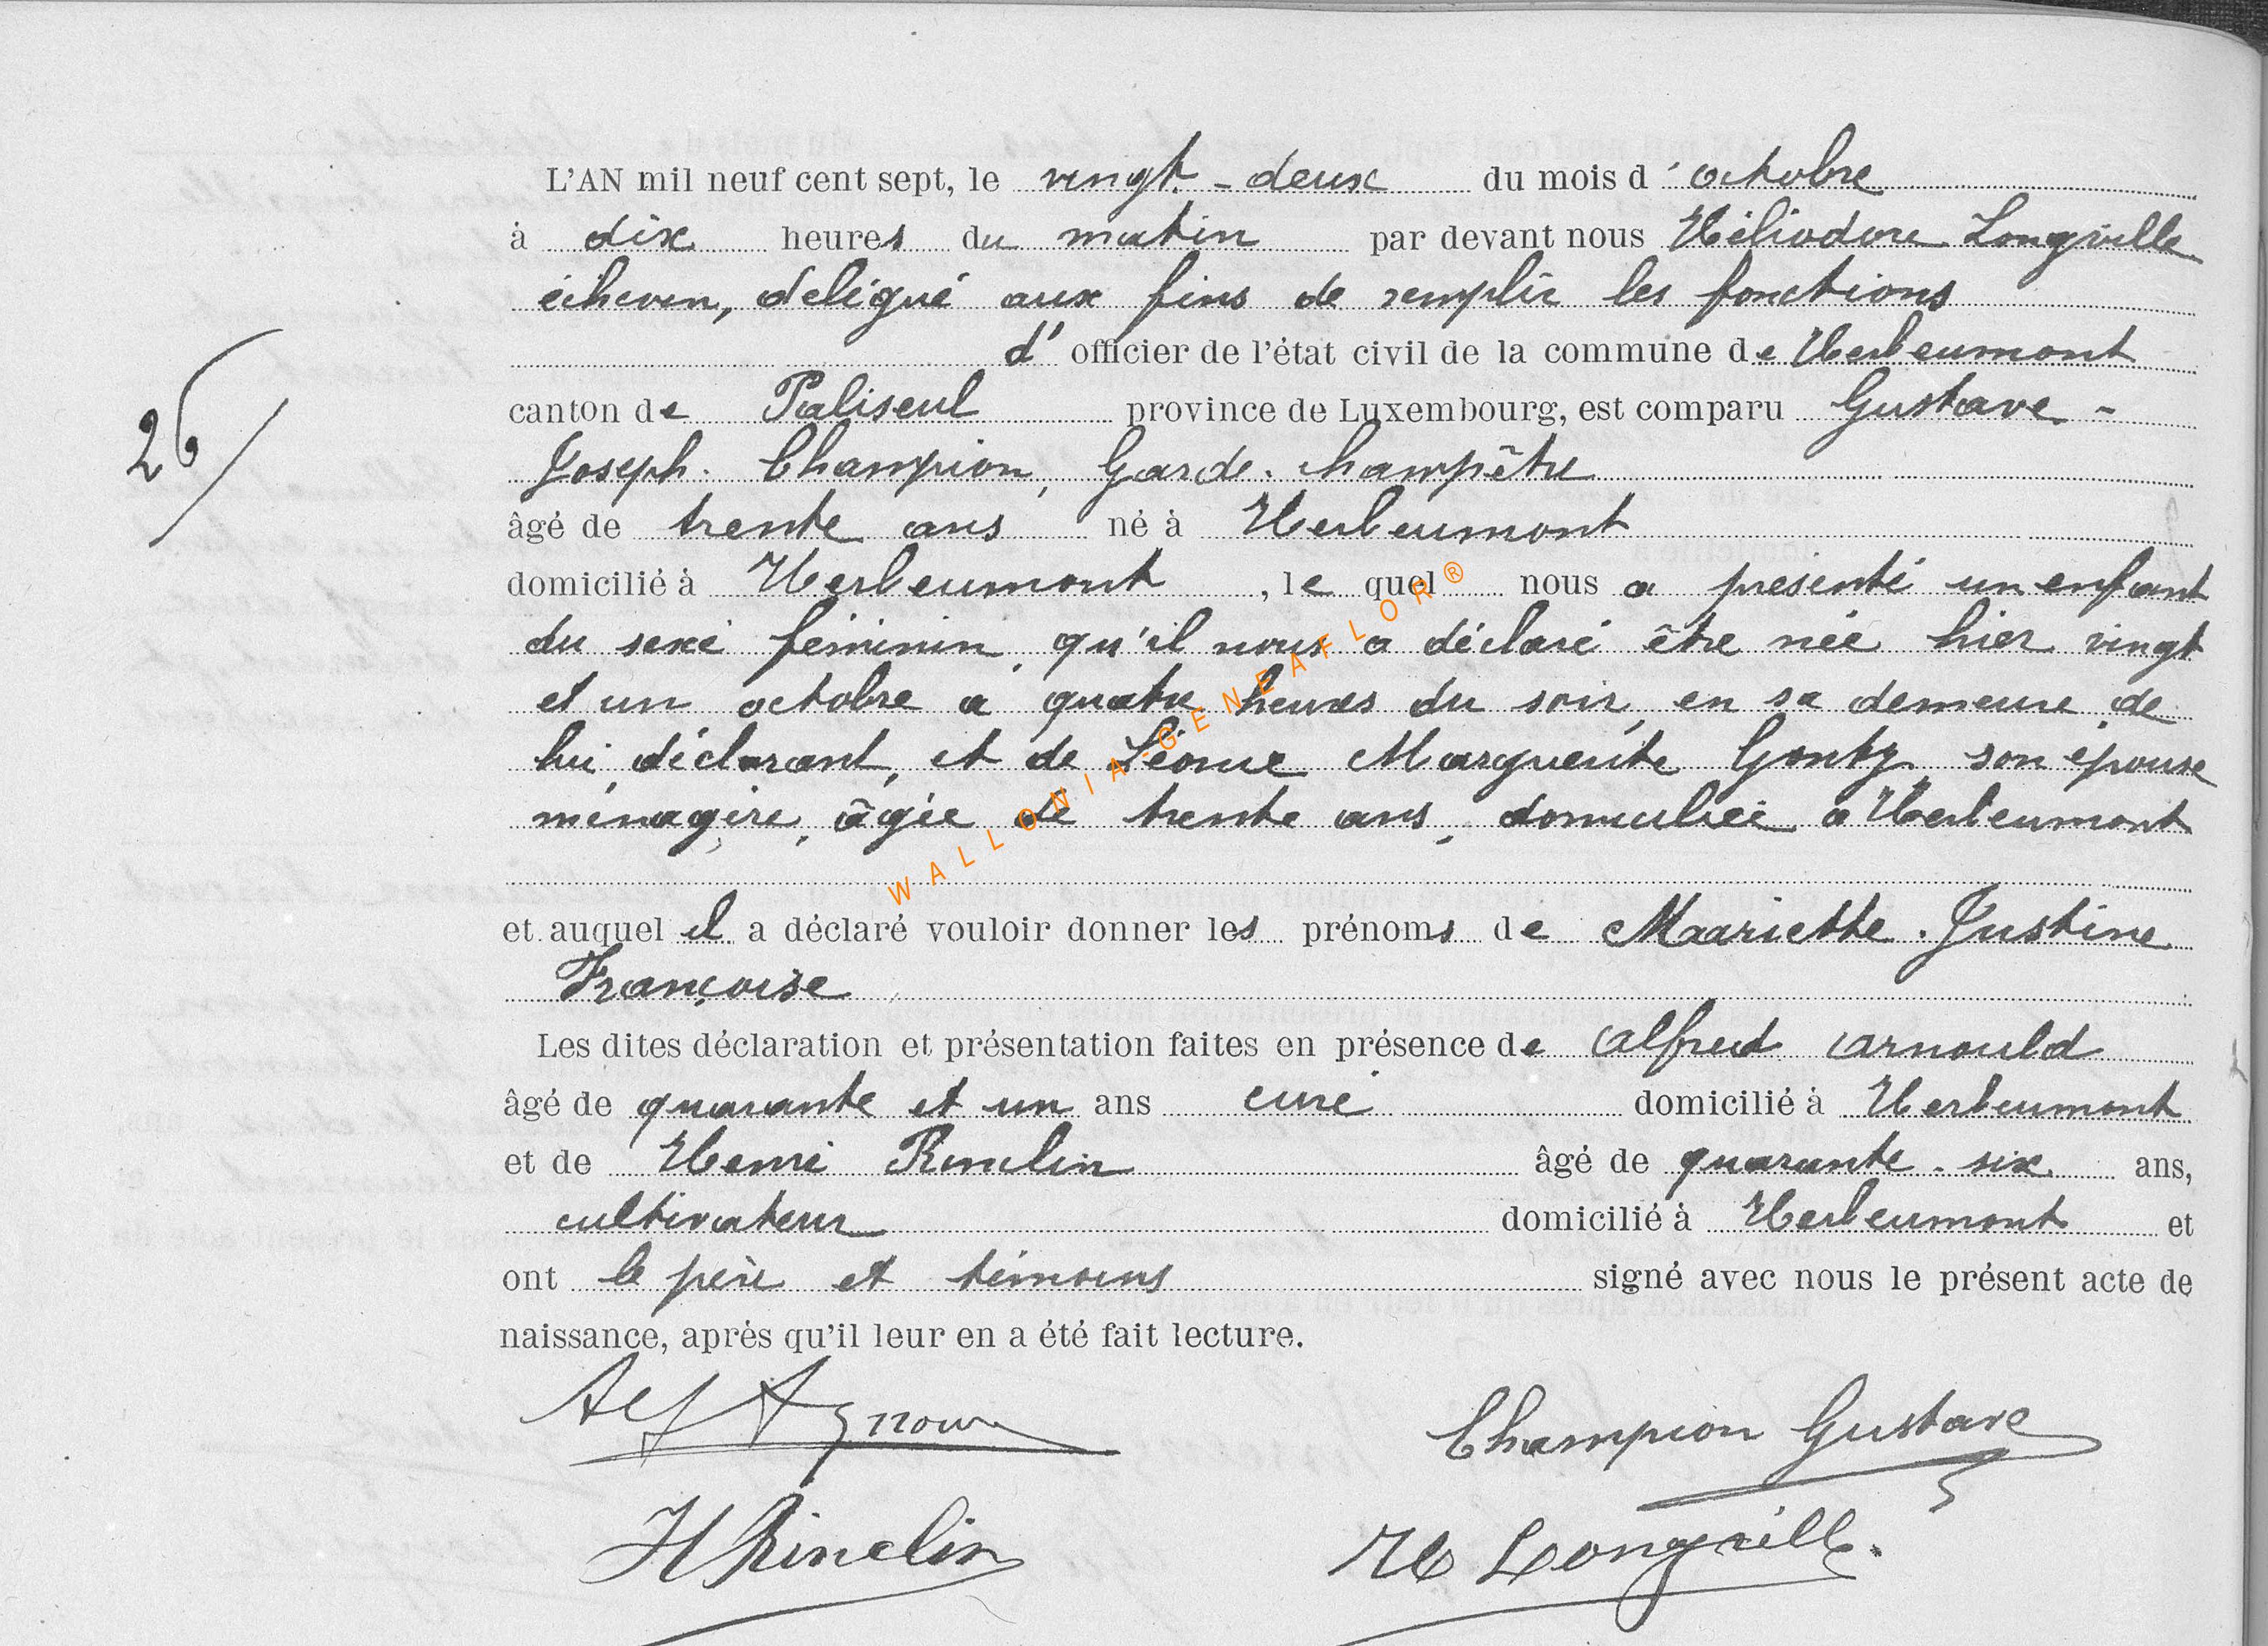 L'AN mil neuf cent sept, le vingt-deux du mois d'octobre
à dix heures du matin par devant nous Héliodore Longville
écheven, delégué aux fins de remplir les fonctions
d' officier de l'état civil de la commune de Herbeumont
canton de Paliseul province de Luxembourg, est comparu Gustave-
26/
Joseph Champion, Garde-champêtre
âgé de trente ans né à Herbeumont
domicilié à Herbeumont, le quel nous a présenté un enfant
du sexe féminin, qu'il nous a déclaré être née hier vingt
et un octobre à quatre heures du soir, en sa demeure, de
lui déclarant, et de Léonie Marguerite Gonty son épouse
ménagère, âgée de trente ans, domiciliée à Herbeumont
WALLONIA-GENEAFLOR®
et auquel il a déclaré vouloir donner les prénoms de Maariette Justine
Françoise
Les dites déclaration et présentation faites en présence de Alfred Arnould
âgé de quarante et un ans curé domicilié à Herbeumont
et de Henri Rinclin âgé de quarante-six ans,
cultivateur domicilié à Herbeumont et
ont le père et témoins signé avec nous le présent acte de
naissance, après qu'il leur en a été fait lecture.
Champion Gustave
H Rinclin
H Longville.